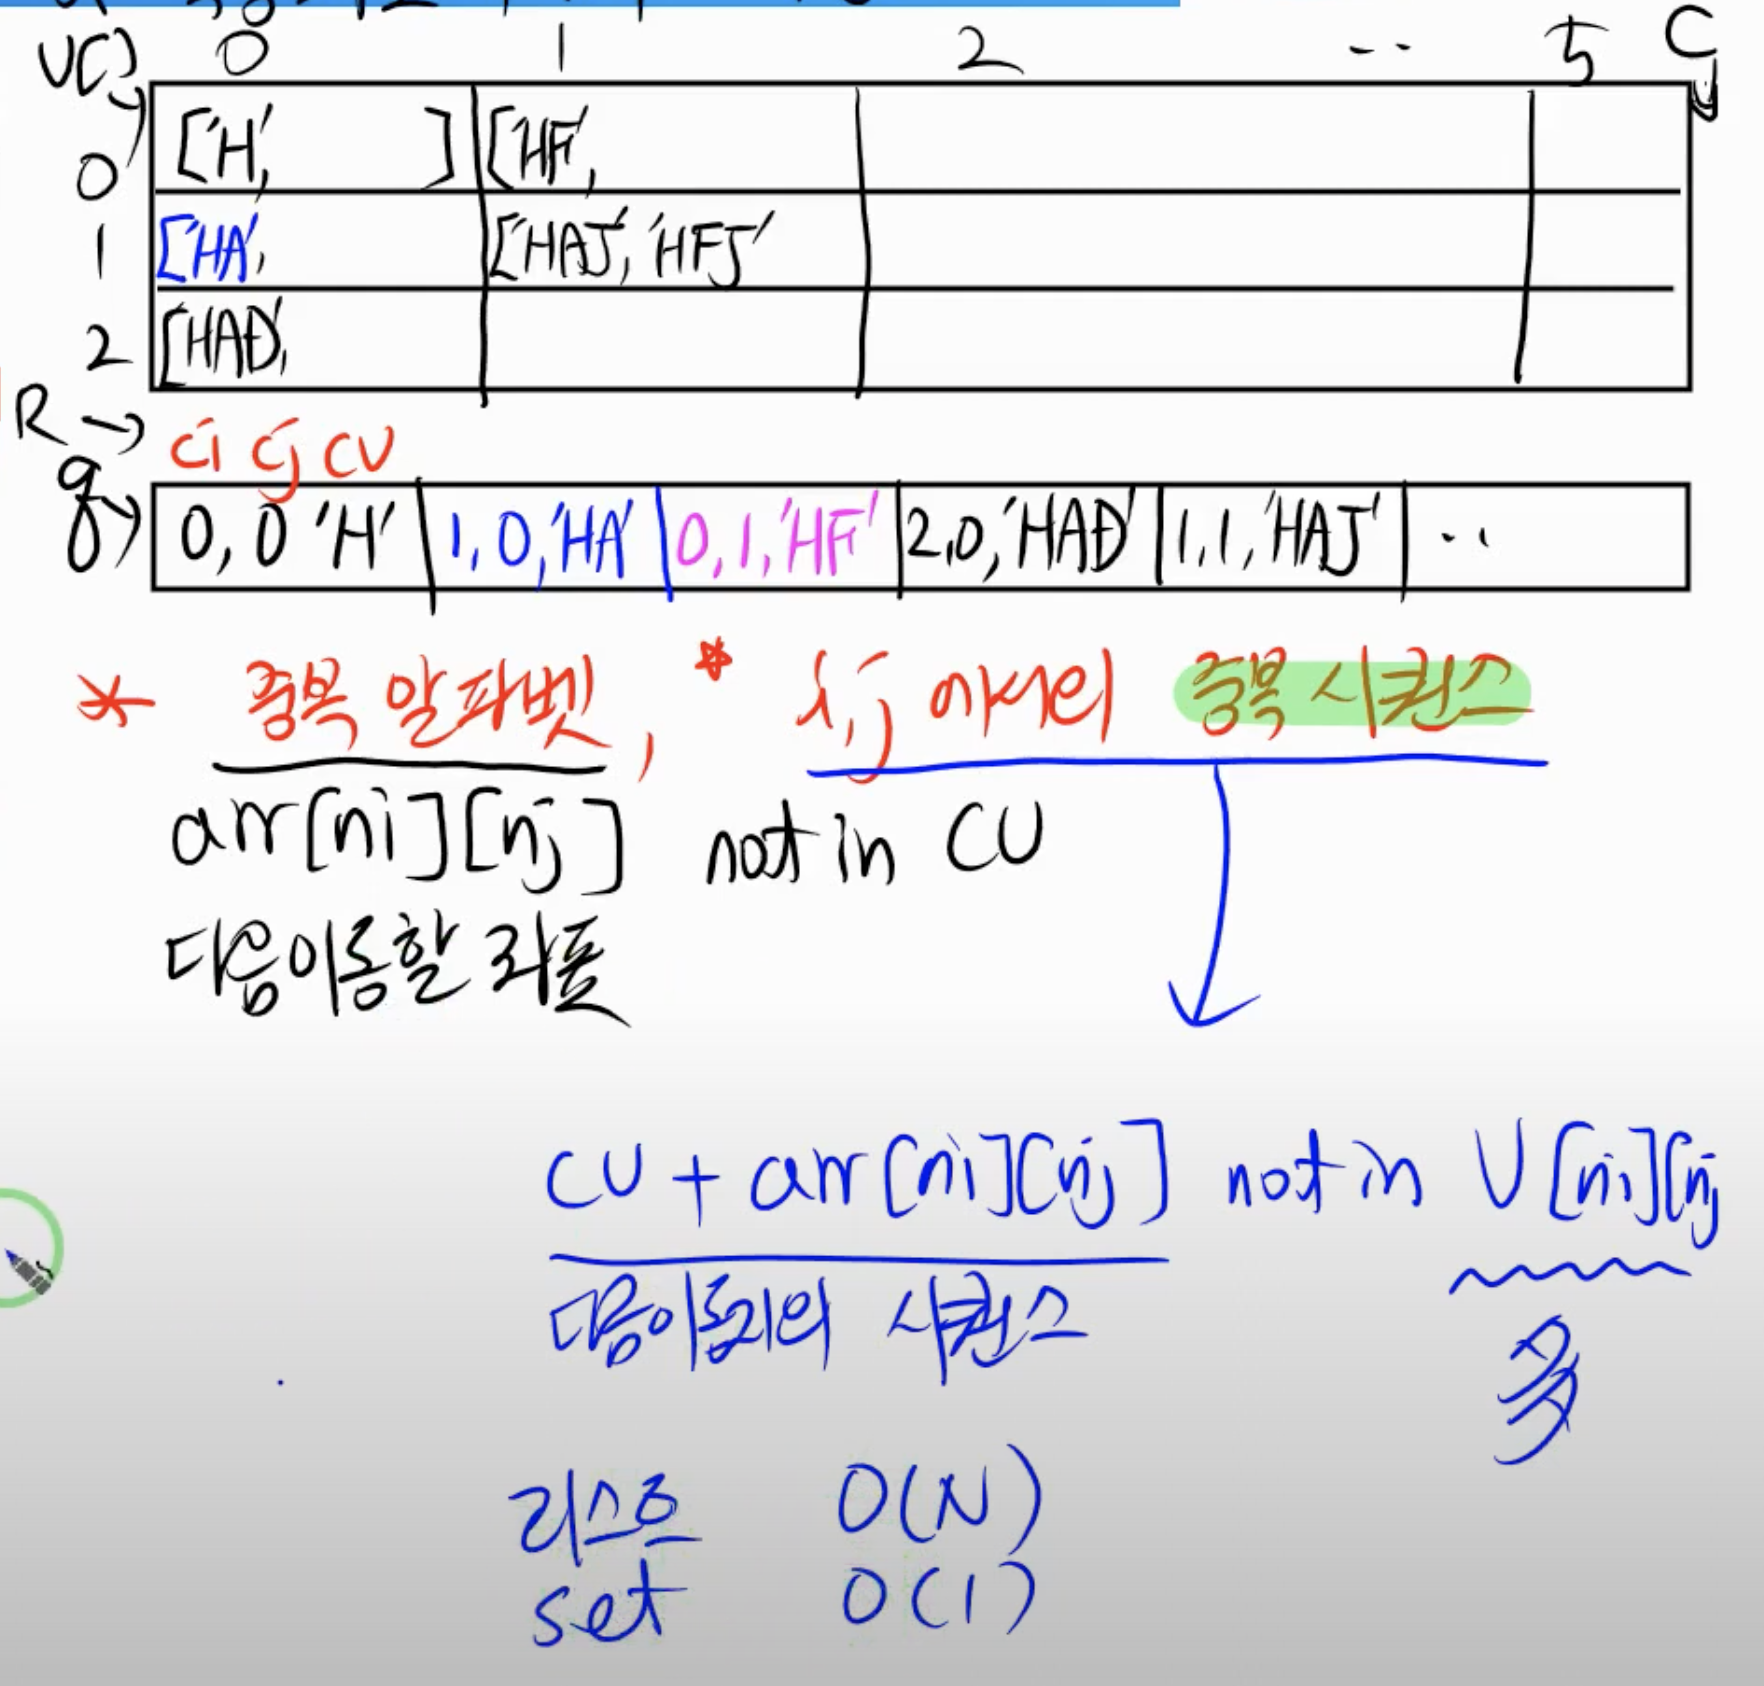 V[] 0 1 2 .. 5 C
0 ['H', ] ['HF',
1 ['HA', ['HAJ', 'HFJ'
2 ['HAD',
R →
ci cj cv
q → 0, 0 'H' 1, 0, 'HA' 0, 1, 'HF' 2,0, 'HAD' 1,1, 'HAJ' ..
* 중복 알파벳, * i,j 에서의 중복 시퀀스
arr[ni][nj] not in CV
다음이동할 좌표
CV + arr[ni][nj] not in V[ni][nj
다음이동지의 시퀀스
多
리스트 O(N)
set O(1)